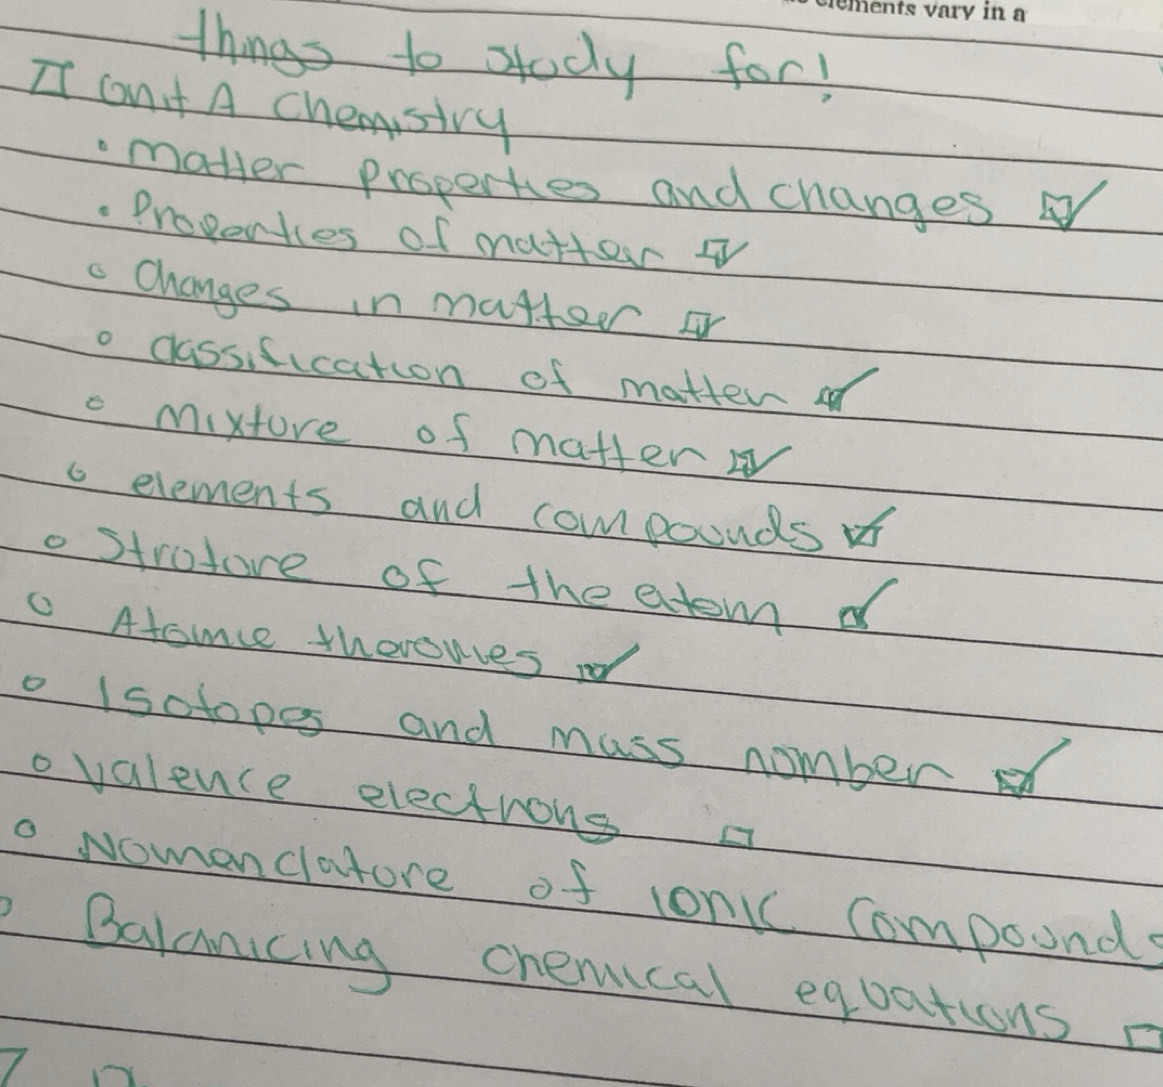 elements vary in a
things to study for!
II Unit A Chemistry
• Matter Properties and changes ☑
• Properties of matter ☑
○ Changes in matter ☑
○ classification of matter ☑
○ Mixture of matter ☑
○ elements and compounds ☑
○ Stroture of the atom ☑
○ Atomic therories ☑
○ Isotopes and mass number ☑
○ Valence electrons ☐
○ Nomanclature of ionic compounds
○ Balanicing chemical equations ☐